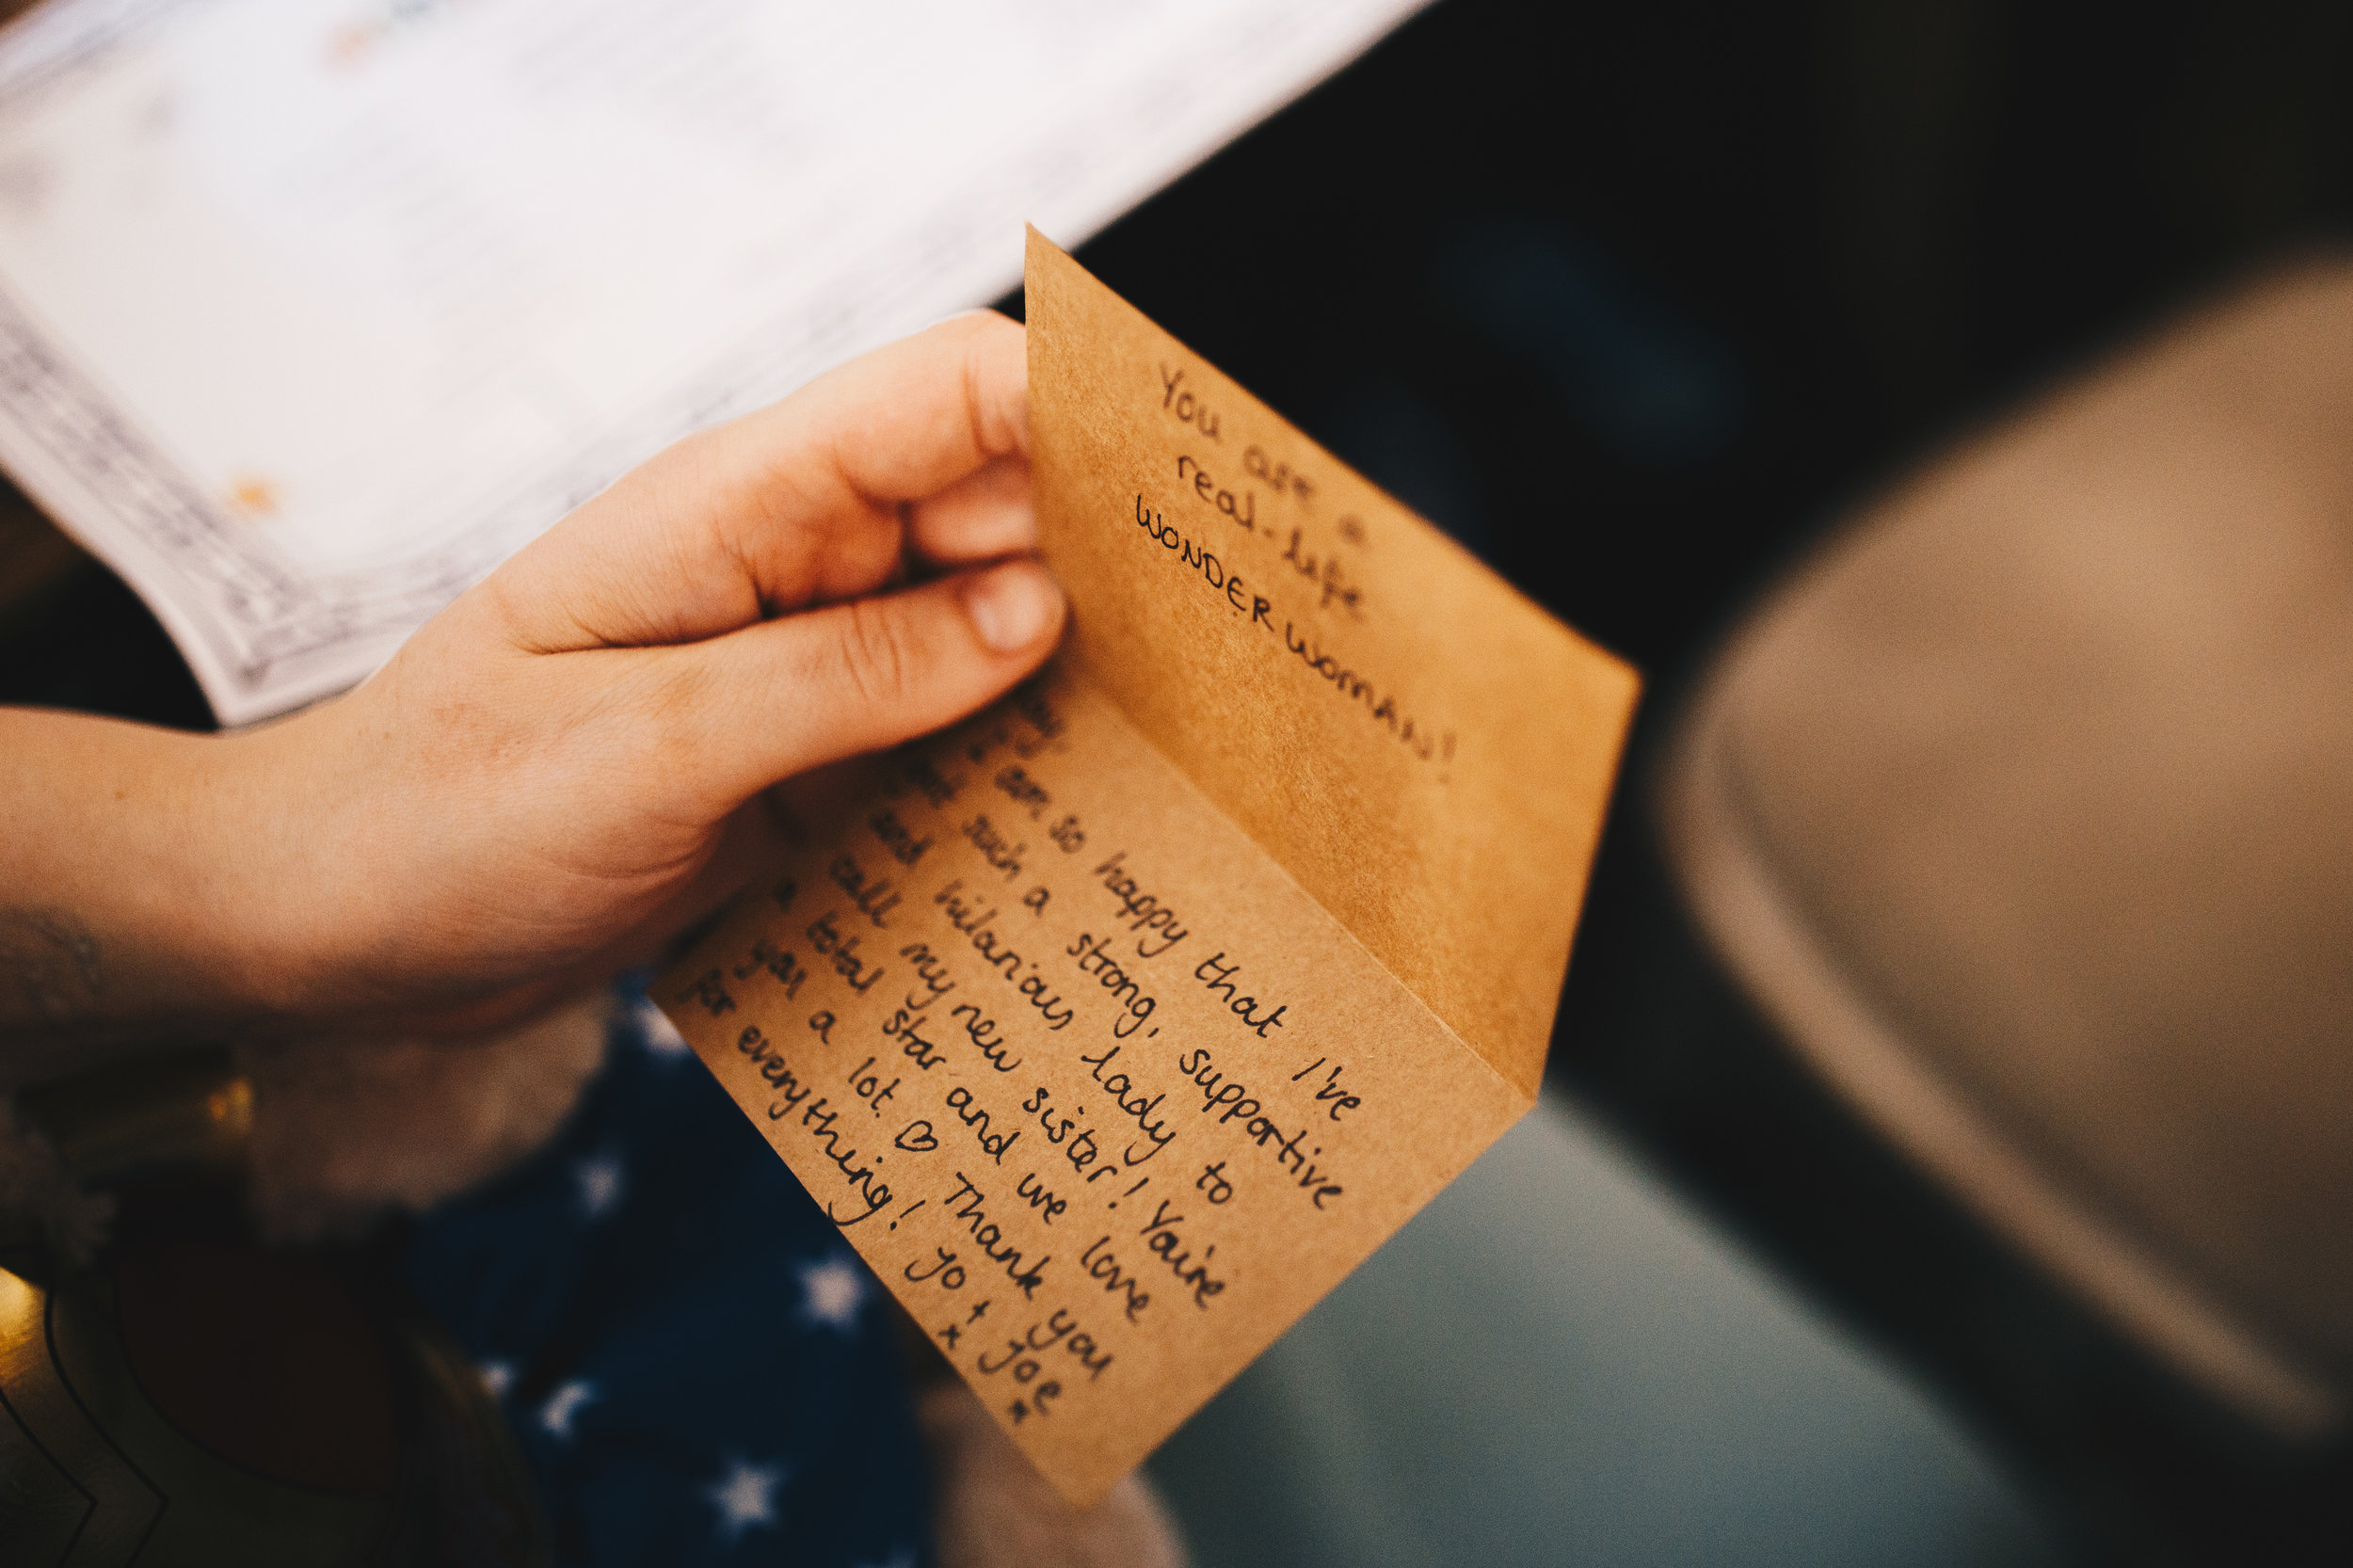 You are a
real-life
WONDER WOMAN!
I am so happy that I've
got such a strong, supportive
and hilarious lady to
call my new sister! You're
a total star and we love
you a lot. ♡ Thank you
for everything! Yo + Joe
x x